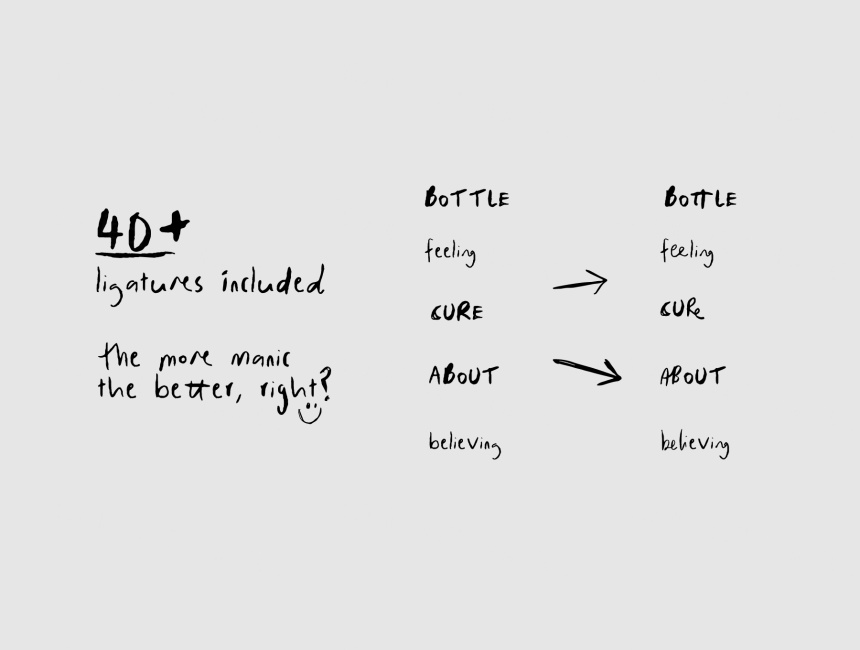 40+
ligatures included
the more manic
the better, right?
BOTTLE
feeling
CURE
ABOUT
believing
BOTTLE
feeling
CURe
ABOUT
believing